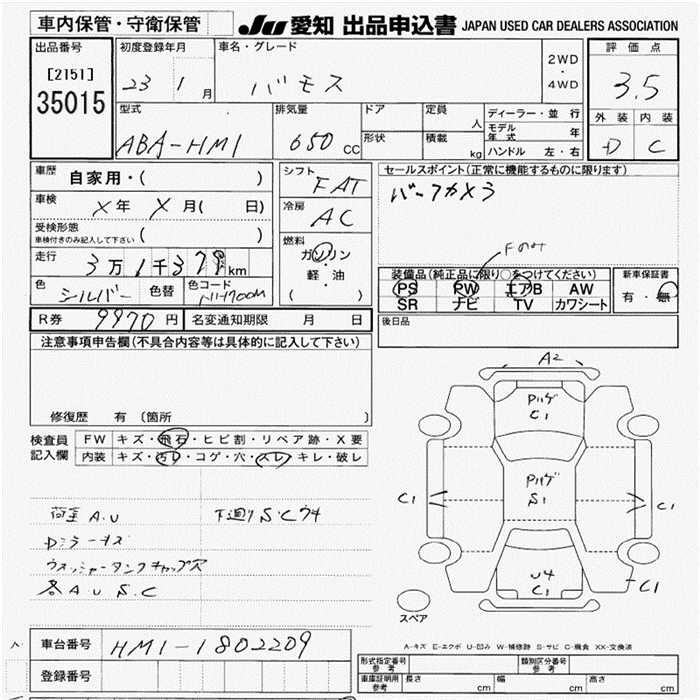 車内保管・守衛保管
JU 愛知 出品申込書 JAPAN USED CAR DEALERS ASSOCIATION
出品番号 初度登録年月 車名・グレード 2WD・4WD 評価点
[2151] 23 1月 バモス 3.5
35015
型式 排気量 ドア 定員 人 ディーラー・並行 外装 内装
ABA-HM1 650 CC 形状 積載 kg モデル年式 年 D C
ハンドル 左・右
車歴 自家用・( ) シフト FAT セールスポイント(正常に機能するものに限ります)
車検 X年 X月( 日) 冷房 AC バックカメラ
受検形態 車検付きのみ記入して下さい ( )
燃料 ガソリン・軽・油 ( )
走行 3万1千379km
Fのみ
装備品(純正品に限り○をつけてください) 新車保証書
色 シルバー 色替 色コード NH700M
PS PW エアB AW 有・無
SR ナビ TV カワシート
R券 9970円 名変通知期限 月 日 後日品
注意事項申告欄(不具合内容等は具体的に記入して下さい)
修復歴 有 (箇所 )
検査員記入欄 FW キズ・飛石・ヒビ割・リペア跡・X要
内装 キズ・汚レ・コゲ・穴・スレ・キレ・破レ
荷室 A.U 下廻りS.Cウキ
Dシラーオス
ウォッシャータンクキャップ欠
各AU S.C
A2
Pハゲ
C1
Pハゲ
S1
C1 C1
U4
C1
C1
スペア
A-キズ E-エクボ U-凹み W-補修跡 S-サビ C-腐食 XX-交換済
車台番号 HM1-1802209
登録番号
形式指定番号 参考 類別区分番号 参考
車庫証明用 参考 長さ cm 幅 cm 高さ cm